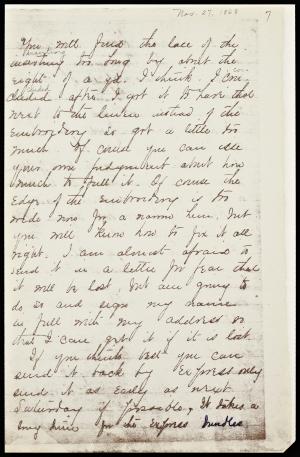 Nov. 27, 1868
7
You will find the lace of the
insertion too long by about the
eight of a yd. I think I con-
cluded after I got it to have that
next to the linen instead of the
embroidery so got a little too
much. Of course you can use
your own judgment about how
much to full it. Of course the
edge of the embroidery is too
wide now for a narrow hem. But
you will know how to fix it all
right. I am almost afraid to
send it in a letter for fear that
it will be lost, but am going to
do so and sign my name
in full with my address so
that I can get it if it is lost.
If you think best you can
send it back by Express only
send it as early as next
Saturday if possible. It takes a
long time for the express bundles